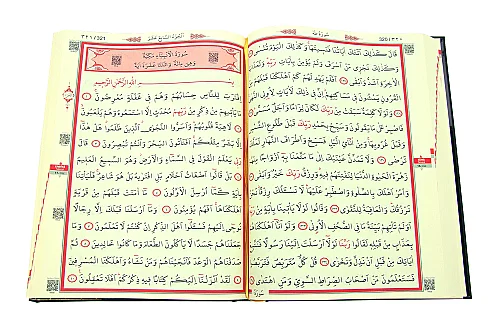 320/٣٢٠ سورة طه
قَالَ كَذٰلِكَ أَتَتْكَ آيَاتُنَا فَنَسِيتَهَا وَكَذٰلِكَ الْيَوْمَ تُنْسٰى
وَكَذٰلِكَ نَجْزِي مَنْ أَسْرَفَ وَلَمْ يُؤْمِنْ بِآيَاتِ رَبِّهِ وَلَعَذَابُ
الْآخِرَةِ أَشَدُّ وَأَبْقٰى أَفَلَمْ يَهْدِ لَهُمْ كَمْ أَهْلَكْنَا قَبْلَهُمْ مِنَ
الْقُرُونِ يَمْشُونَ فِي مَسَاكِنِهِمْ إِنَّ فِي ذٰلِكَ لَآيَاتٍ لِأُولِي
النُّهٰى وَلَوْلَا كَلِمَةٌ سَبَقَتْ مِنْ رَبِّكَ لَكَانَ لِزَامًا وَأَجَلٌ مُسَمًّى
فَاصْبِرْ عَلٰى مَا يَقُولُونَ وَسَبِّحْ بِحَمْدِ رَبِّكَ قَبْلَ طُلُوعِ الشَّمْسِ
وَقَبْلَ غُرُوبِهَا وَمِنْ آنَاءِ اللَّيْلِ فَسَبِّحْ وَأَطْرَافَ النَّهَارِ لَعَلَّكَ
تَرْضٰى وَلَا تَمُدَّنَّ عَيْنَيْكَ إِلٰى مَا مَتَّعْنَا بِهِ أَزْوَاجًا مِنْهُمْ
زَهْرَةَ الْحَيٰوةِ الدُّنْيَا لِنَفْتِنَهُمْ فِيهِ وَرِزْقُ رَبِّكَ خَيْرٌ وَأَبْقٰى
وَأْمُرْ أَهْلَكَ بِالصَّلٰوةِ وَاصْطَبِرْ عَلَيْهَا لَا نَسْئَلُكَ رِزْقًا نَحْنُ
نَرْزُقُكَ وَالْعَاقِبَةُ لِلتَّقْوٰى وَقَالُوا لَوْلَا يَأْتِينَا بِآيَةٍ مِنْ رَبِّهِ
أَوَلَمْ تَأْتِهِمْ بَيِّنَةُ مَا فِي الصُّحُفِ الْأُولٰى وَلَوْ أَنَّا أَهْلَكْنَاهُمْ
بِعَذَابٍ مِنْ قَبْلِهِ لَقَالُوا رَبَّنَا لَوْلَا أَرْسَلْتَ إِلَيْنَا رَسُولًا فَنَتَّبِعَ
آيَاتِكَ مِنْ قَبْلِ أَنْ نَذِلَّ وَنَخْزٰى قُلْ كُلٌّ مُتَرَبِّصٌ فَتَرَبَّصُوا
فَسَتَعْلَمُونَ مَنْ أَصْحَابُ الصِّرَاطِ السَّوِيِّ وَمَنِ اهْتَدٰى
الجزء السابع عشر ٣٢١/321
سُورَةُ الْأَنْبِيَاءِ مَكِّيَّةٌ
وَهِيَ مِائَةٌ وَاثْنَتَا عَشْرَةَ آيَةً
بِسْمِ اللّٰهِ الرَّحْمٰنِ الرَّحِيمِ
اقْتَرَبَ لِلنَّاسِ حِسَابُهُمْ وَهُمْ فِي غَفْلَةٍ مُعْرِضُونَ مَا
يَأْتِيهِمْ مِنْ ذِكْرٍ مِنْ رَبِّهِمْ مُحْدَثٍ إِلَّا اسْتَمَعُوهُ وَهُمْ يَلْعَبُونَ
لَاهِيَةً قُلُوبُهُمْ وَأَسَرُّوا النَّجْوَى الَّذِينَ ظَلَمُوا هَلْ هٰذَا
إِلَّا بَشَرٌ مِثْلُكُمْ أَفَتَأْتُونَ السِّحْرَ وَأَنْتُمْ تُبْصِرُونَ قَالَ
رَبِّي يَعْلَمُ الْقَوْلَ فِي السَّمَاءِ وَالْأَرْضِ وَهُوَ السَّمِيعُ الْعَلِيمُ
بَلْ قَالُوا أَضْغَاثُ أَحْلَامٍ بَلِ افْتَرٰيهُ بَلْ هُوَ شَاعِرٌ فَلْيَأْتِنَا
بِآيَةٍ كَمَا أُرْسِلَ الْأَوَّلُونَ مَا آمَنَتْ قَبْلَهُمْ مِنْ قَرْيَةٍ
أَهْلَكْنَاهَا أَفَهُمْ يُؤْمِنُونَ وَمَا أَرْسَلْنَا قَبْلَكَ إِلَّا رِجَالًا
نُوحِي إِلَيْهِمْ فَسْئَلُوا أَهْلَ الذِّكْرِ إِنْ كُنْتُمْ لَا تَعْلَمُونَ وَمَا
جَعَلْنَاهُمْ جَسَدًا لَا يَأْكُلُونَ الطَّعَامَ وَمَا كَانُوا خَالِدِينَ ثُمَّ
صَدَقْنَاهُمُ الْوَعْدَ فَأَنْجَيْنَاهُمْ وَمَنْ نَشَاءُ وَأَهْلَكْنَا الْمُسْرِفِينَ
لَقَدْ أَنْزَلْنَا إِلَيْكُمْ كِتَابًا فِيهِ ذِكْرُكُمْ أَفَلَا تَعْقِلُونَ